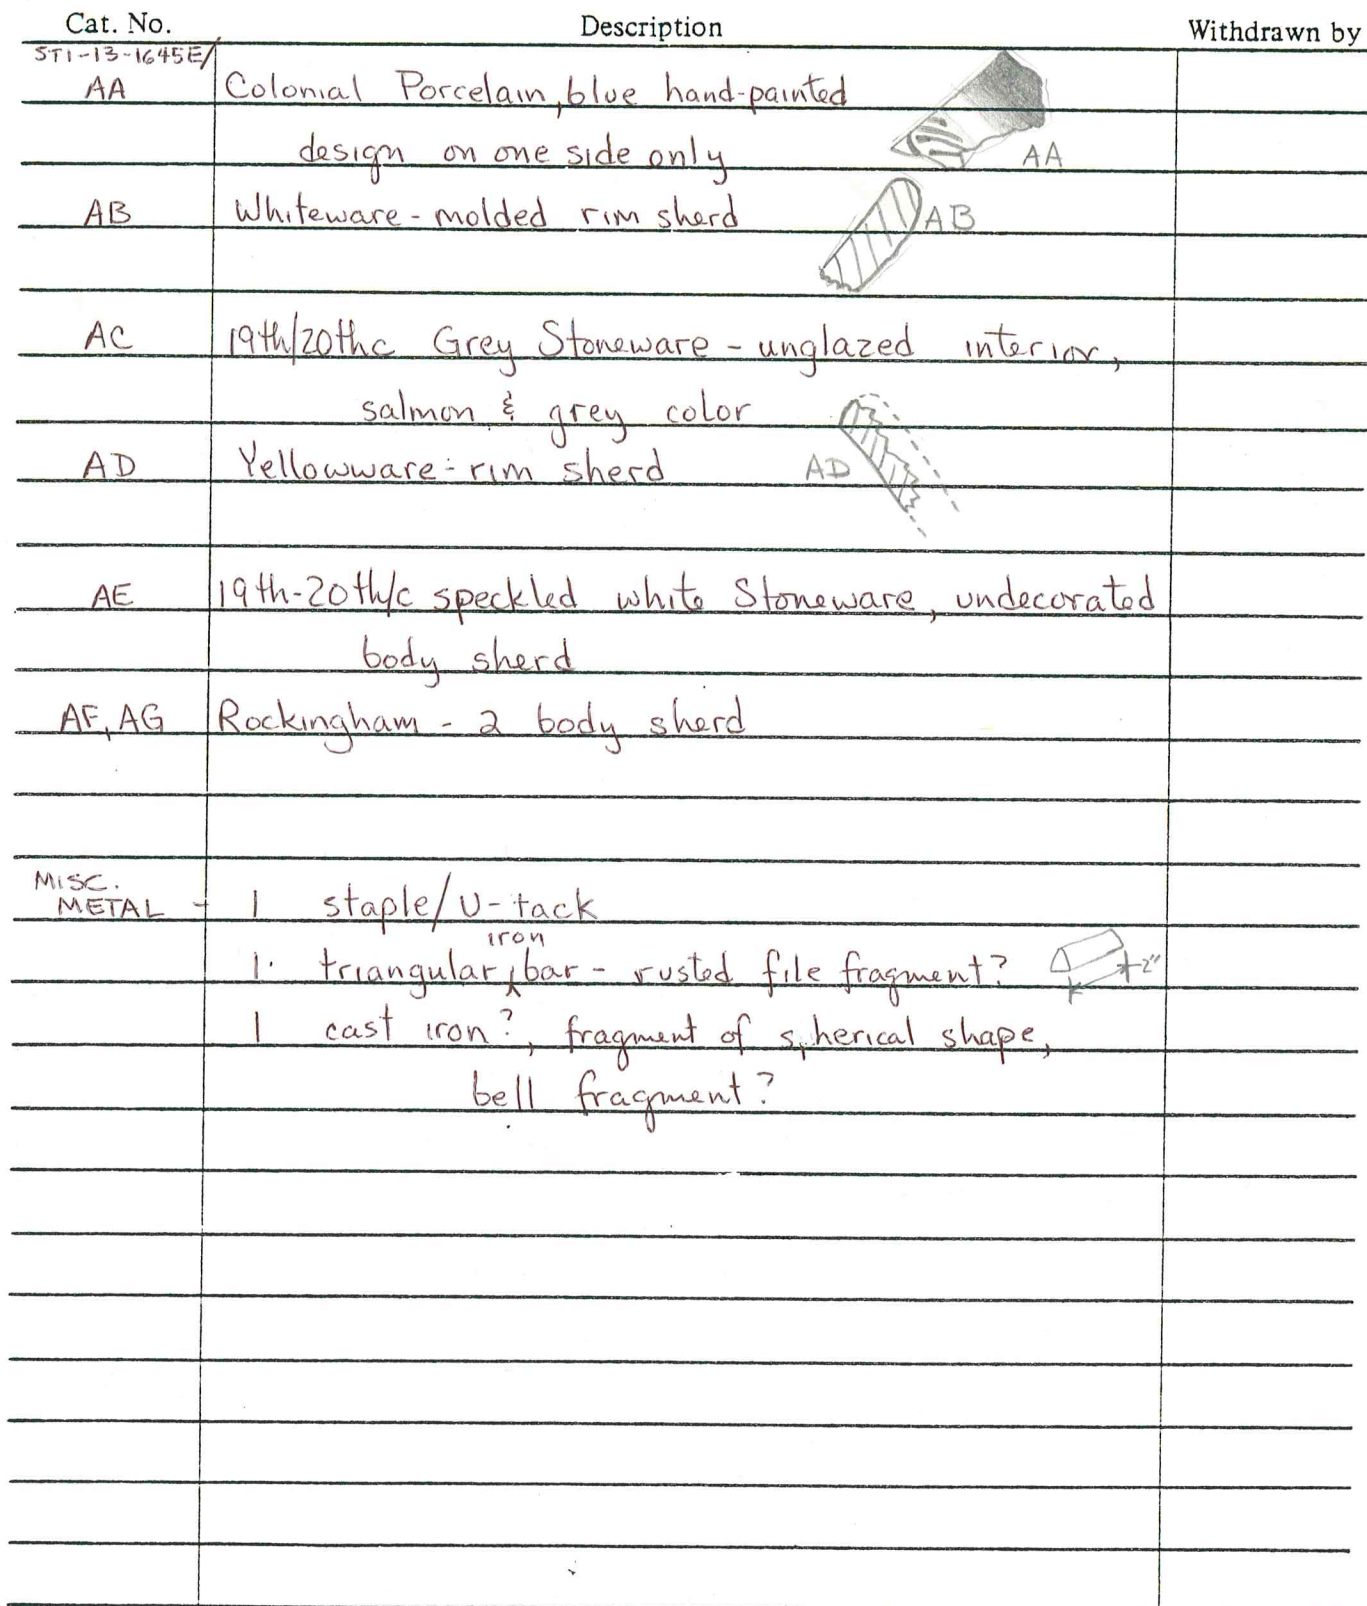 Cat. No. Description Withdrawn by
ST1-13-1645E/
AA Colonial Porcelain, blue hand-painted
design on one side only AA
AB Whiteware - molded rim sherd AB
AC 19th/20thc Grey Stoneware - unglazed interior,
salmon & grey color
AD Yellowware - rim sherd AD
AE 19th-20th/c speckled white Stoneware, undecorated
body sherd
AF, AG Rockingham - 2 body sherd
MISC.
METAL - 1 staple/U-tack
iron
1 triangular ‸ bar - rusted file fragment? 2"
1 cast iron?, fragment of spherical shape,
bell fragment?